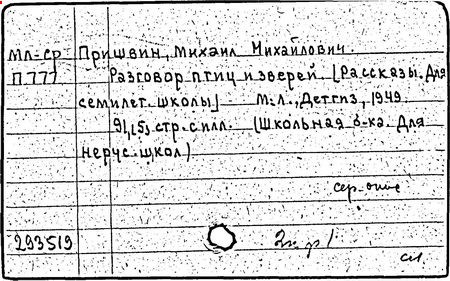 Мл-ср Пришвин, Михаил Михайлович.
П.777 Разговор птиц и зверей. [Рассказы. Для
семилет. школы] М.-Л., Детгиз, 1949.
91, [5] стр. с илл. (Школьная б-ка. Для
нерус. школ)
293519